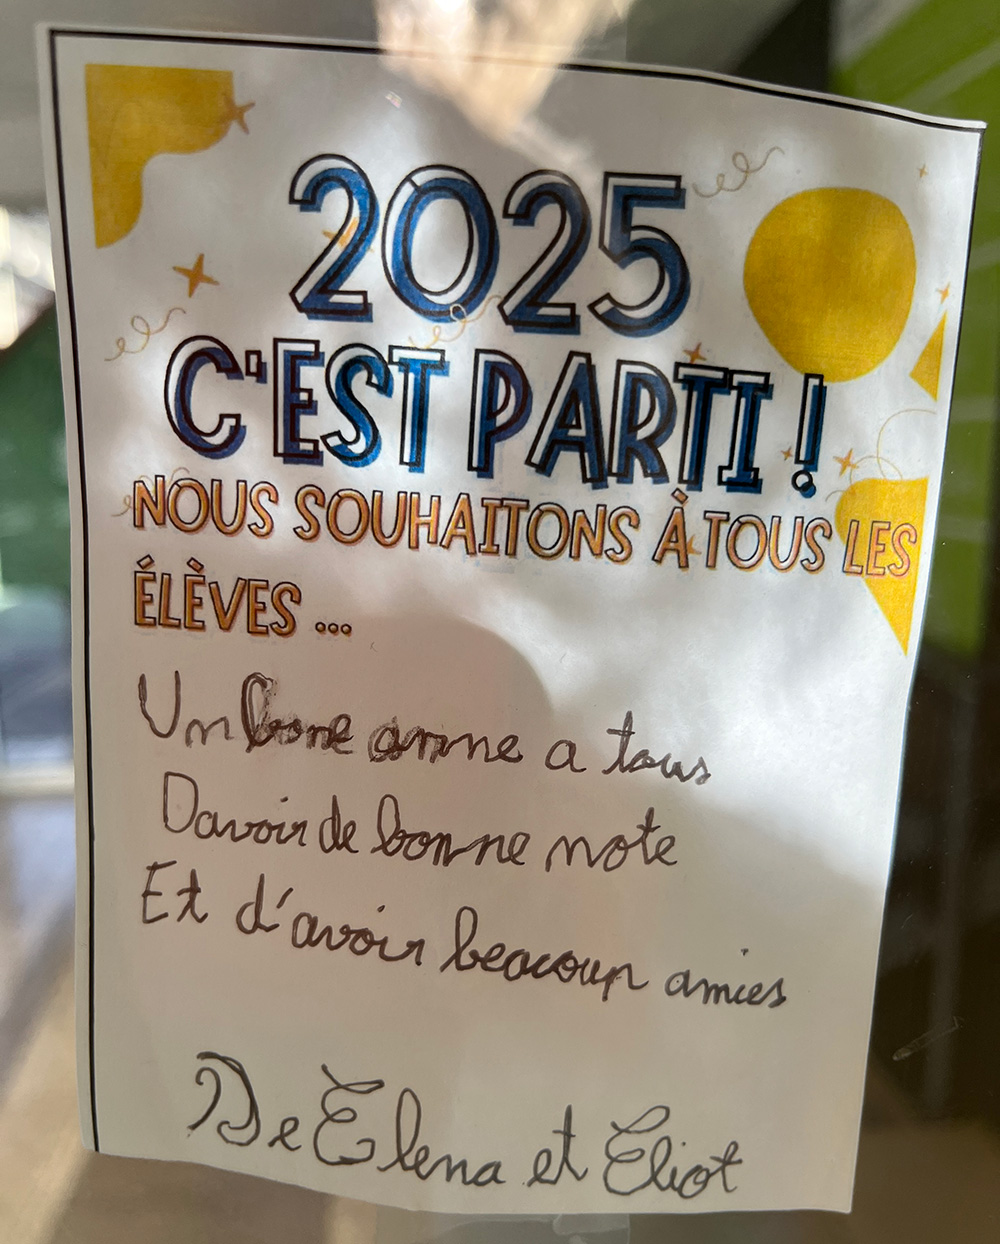 2025
C'EST PARTI !
NOUS SOUHAITONS À TOUS LES
ÉLÈVES ...
Un bone anne a tous
Davoir de bonne note
Et d'avoir beacoup amies
De Elena et Eliot